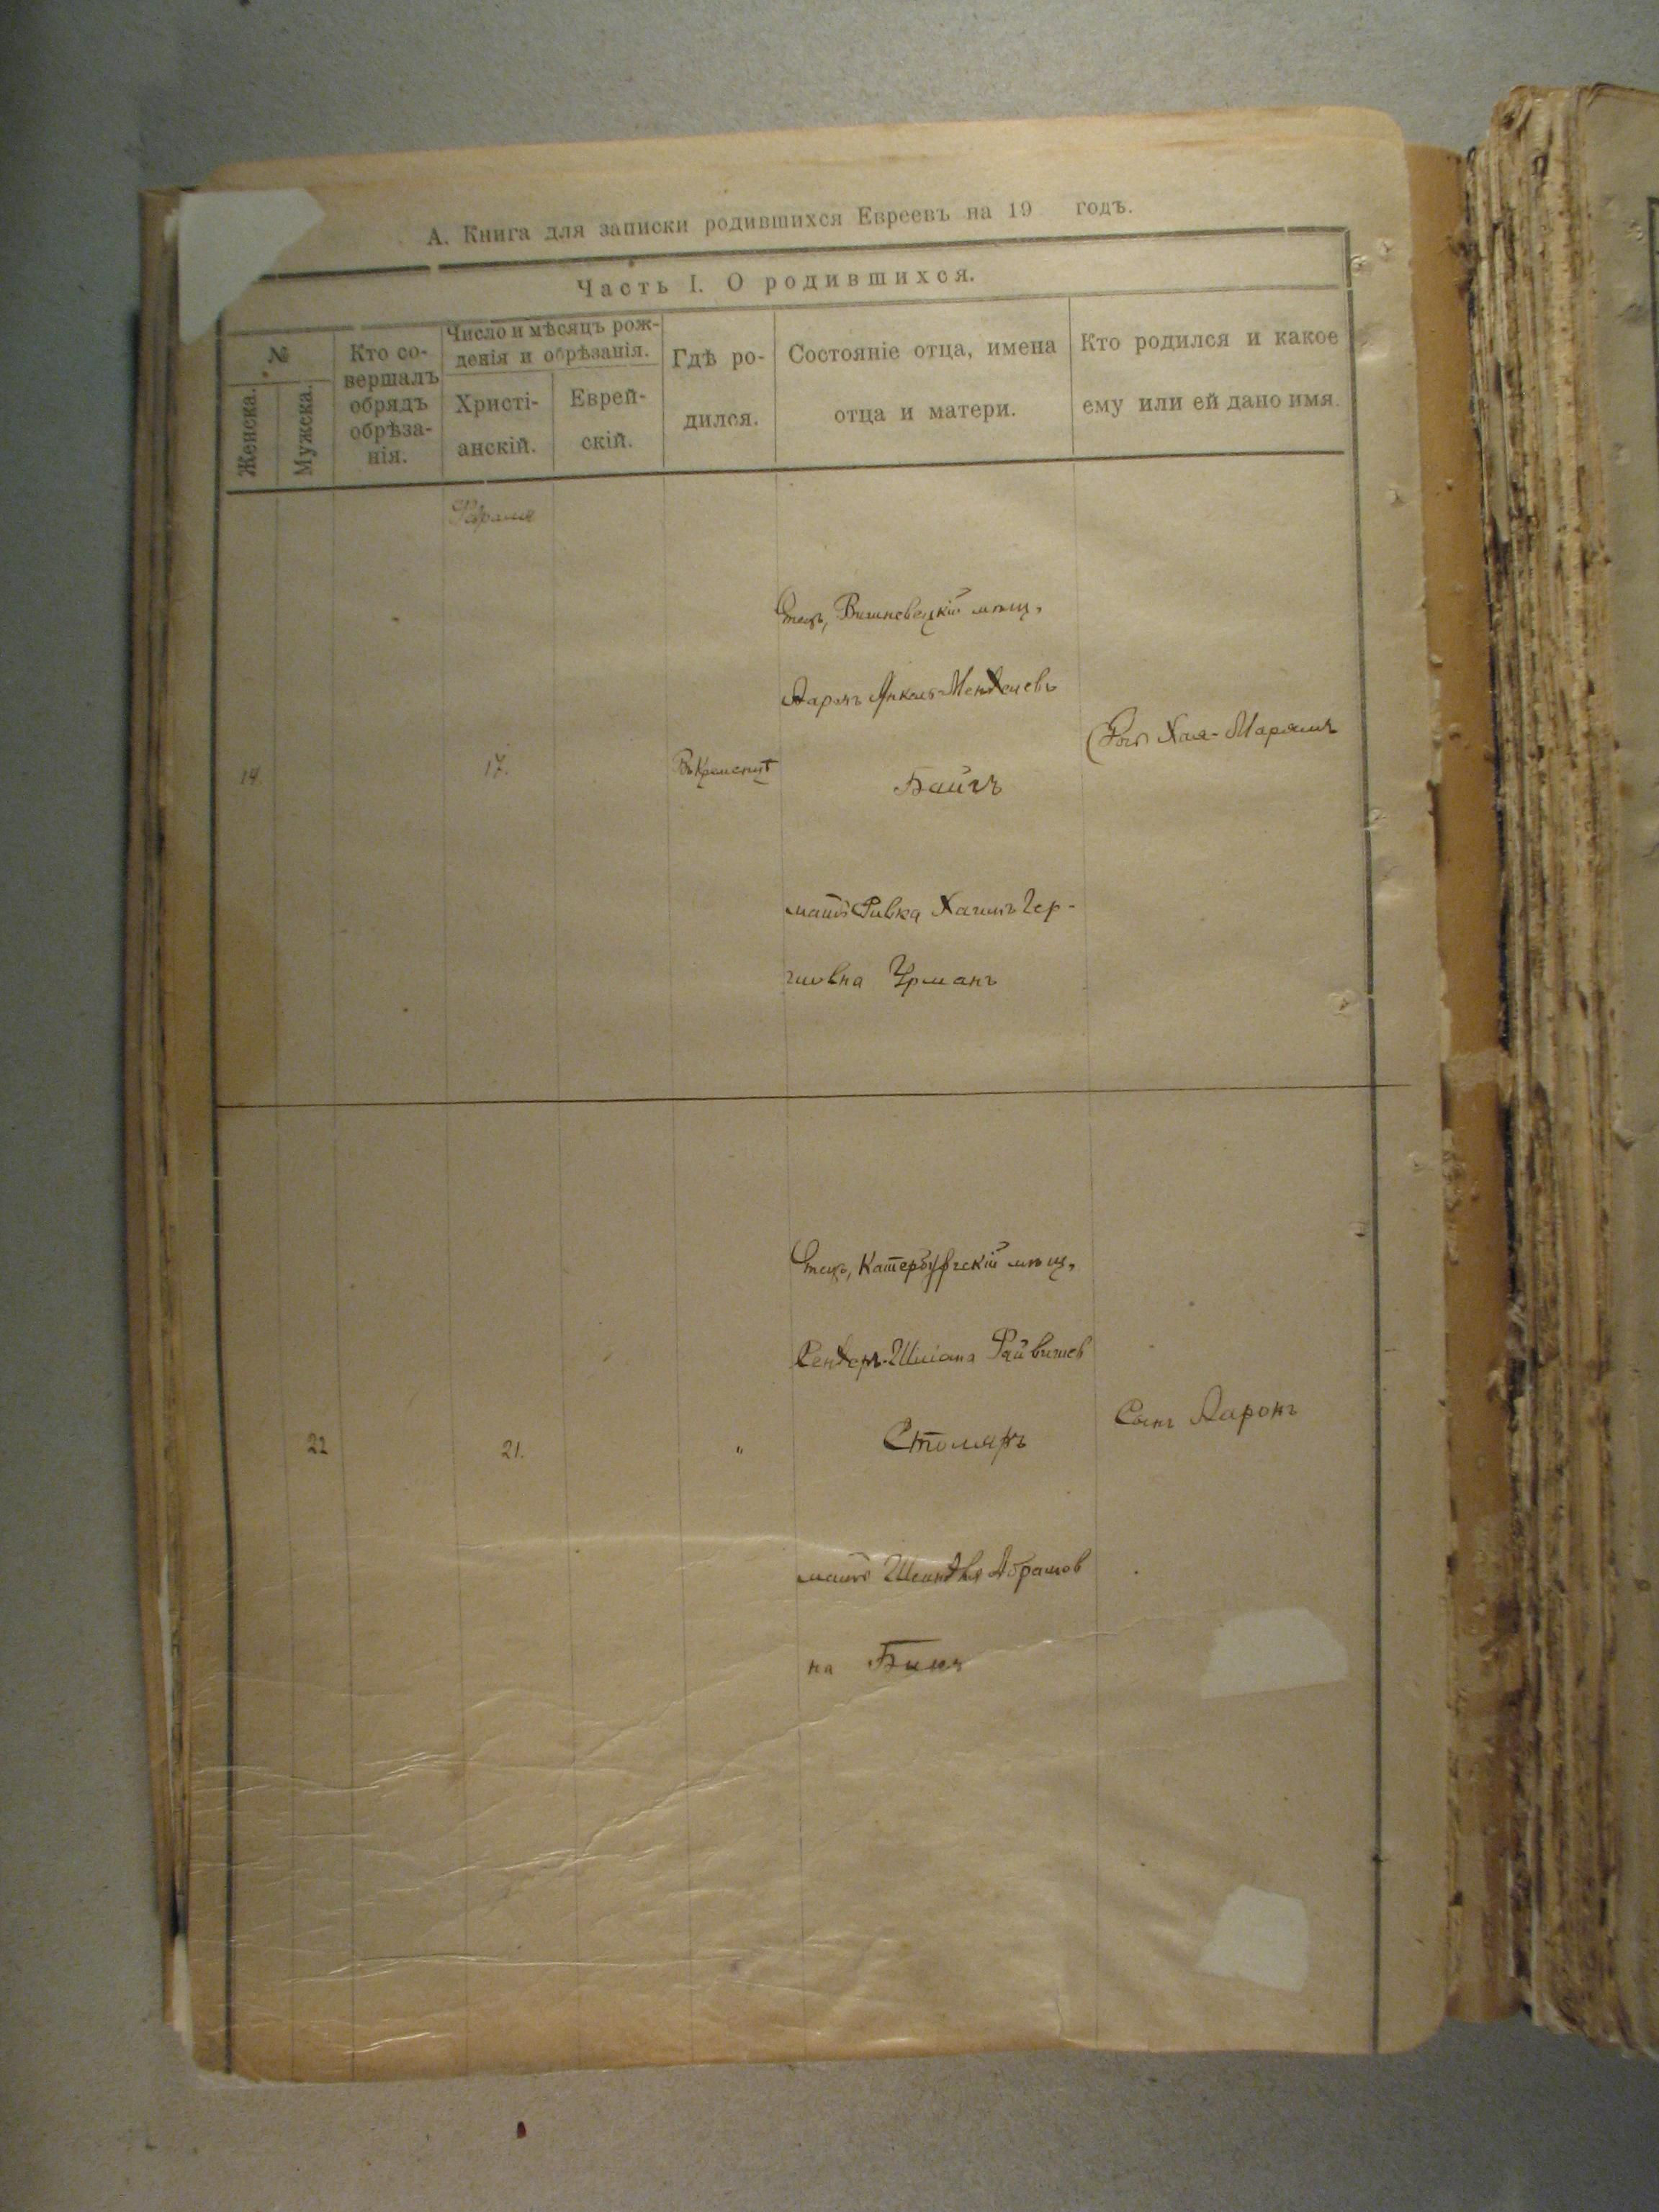 А. Книга для записки родившихся Евреевъ на 19 годъ.
Часть I. О родившихся.
№
Женска.
Мужска.
Кто со-
вершалъ
обрядъ
обрѣза-
нія.
Число и мѣсяцъ рож-
денія и обрѣзанія.
Христі-
анскій.
Еврей-
скій.
Гдѣ ро-
дился.
Состояніе отца, имена
отца и матери.
Кто родился и какое
ему или ей дано имя.
14.
17.
Отецъ, Вишневецкій мѣщ.
Ааронъ Янкель-Менделевъ
Байчъ
мать Ривка Хаимъ Гер-
шовна Урманъ
Хая-Марямъ
22
21.
"
Отецъ, Катербургскій мѣщ.
Сендеръ-Шліома Файвишев
Столяръ
мать Шейндля Абрамов
на
Сынъ Ааронъ